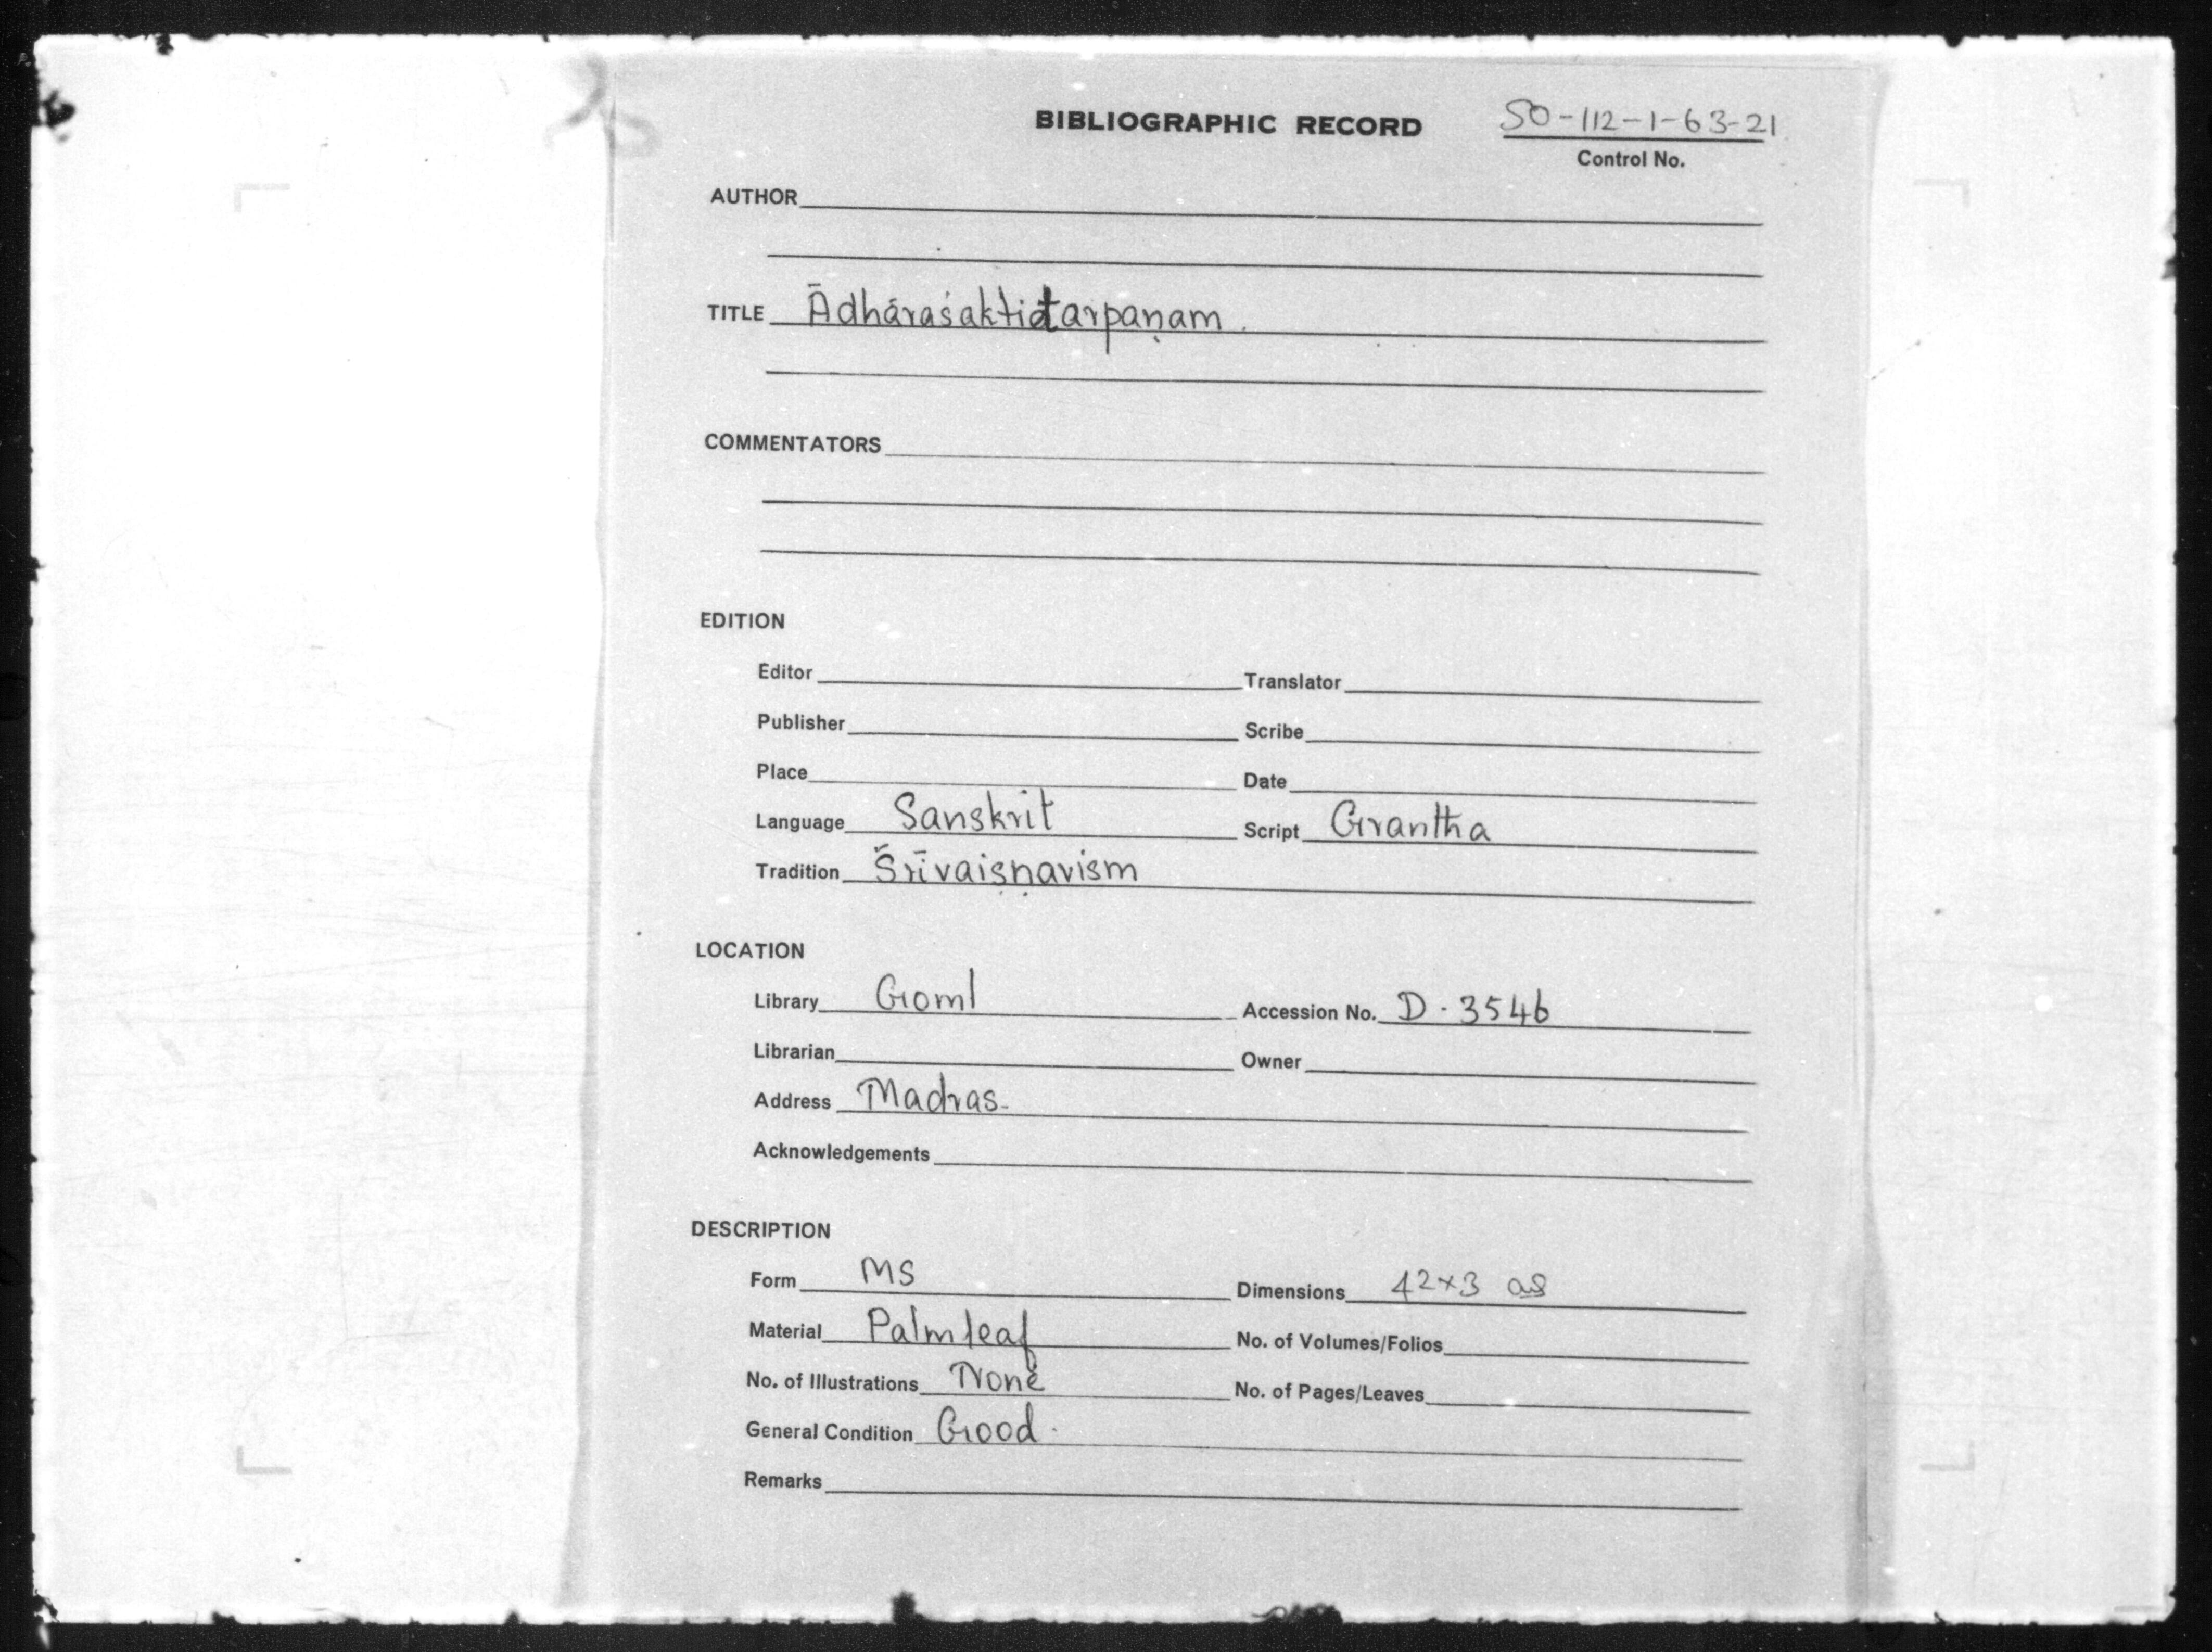 BIBLIOGRAPHIC RECORD SO-112-1-63-21
Control No.
AUTHOR
TITLE Ādhāraśaktitarpaṇam.
COMMENTATORS
EDITION
Editor Translator
Publisher Scribe
Place Date
Language Sanskrit Script Grantha
Tradition Śrīvaiṣṇavism
LOCATION
Library Goml Accession No. D. 3546
Librarian Owner
Address Madras.
Acknowledgements
DESCRIPTION
Form MS Dimensions 42×3
Material Palmleaf No. of Volumes/Folios
No. of Illustrations None No. of Pages/Leaves
General Condition Good.
Remarks